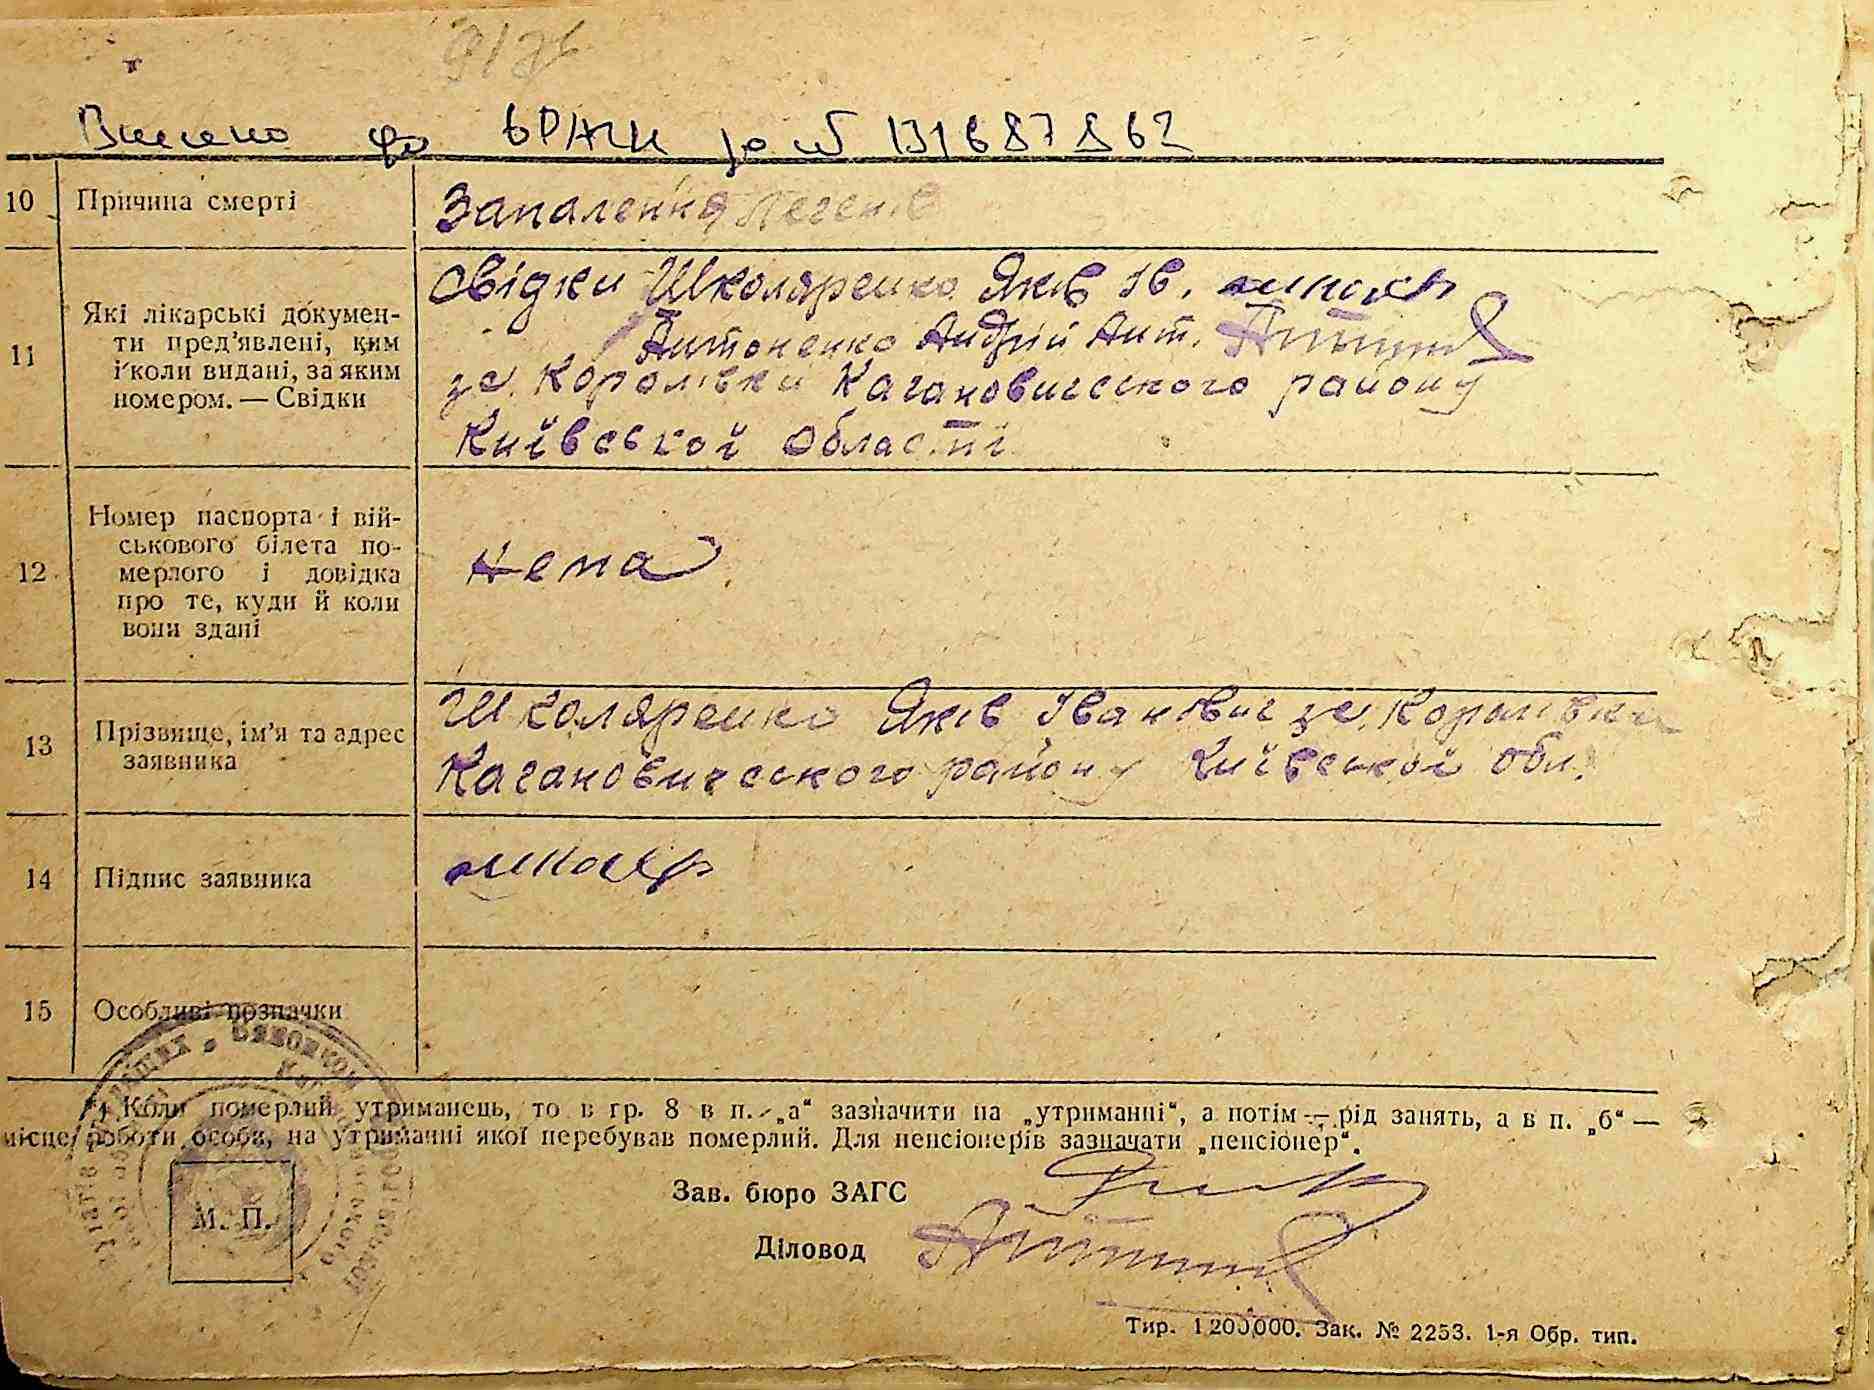 Внесено до ЄРАЦС за № 131687862
10 Причина смерті
Запалення легенів
11 Які лікарські докумен-
ти пред'явлені, ким
і коли видані, за яким
номером. — Свідки
Свідки Школяренко Яків Ів.
Антоненко Андрій Ант.
зс. Королівки Кагановичеського району
Київської Області
12 Номер паспорта і вій-
ськового білета по-
мерлого і довідка
про те, куди й коли
вони здані
Нема
13 Прізвище, ім'я та адрес
заявника
Школяренко Яків Іванович зс. Королівки
Кагановичеського району Київської обл.
14 Підпис заявника
15 Особливі позначки
*) Коли померлий утриманець, то в гр. 8 в п. „а“ зазначити на „утриманні“, а потім — рід занять, а в п. „б“ —
місце роботи особи, на утриманні якої перебував померлий. Для пенсіонерів зазначати „пенсіонер“.
М. П.
Зав. бюро ЗАГС
Діловод
Тир. 1.200.000. Зак. № 2253. 1-я Обр. тип.